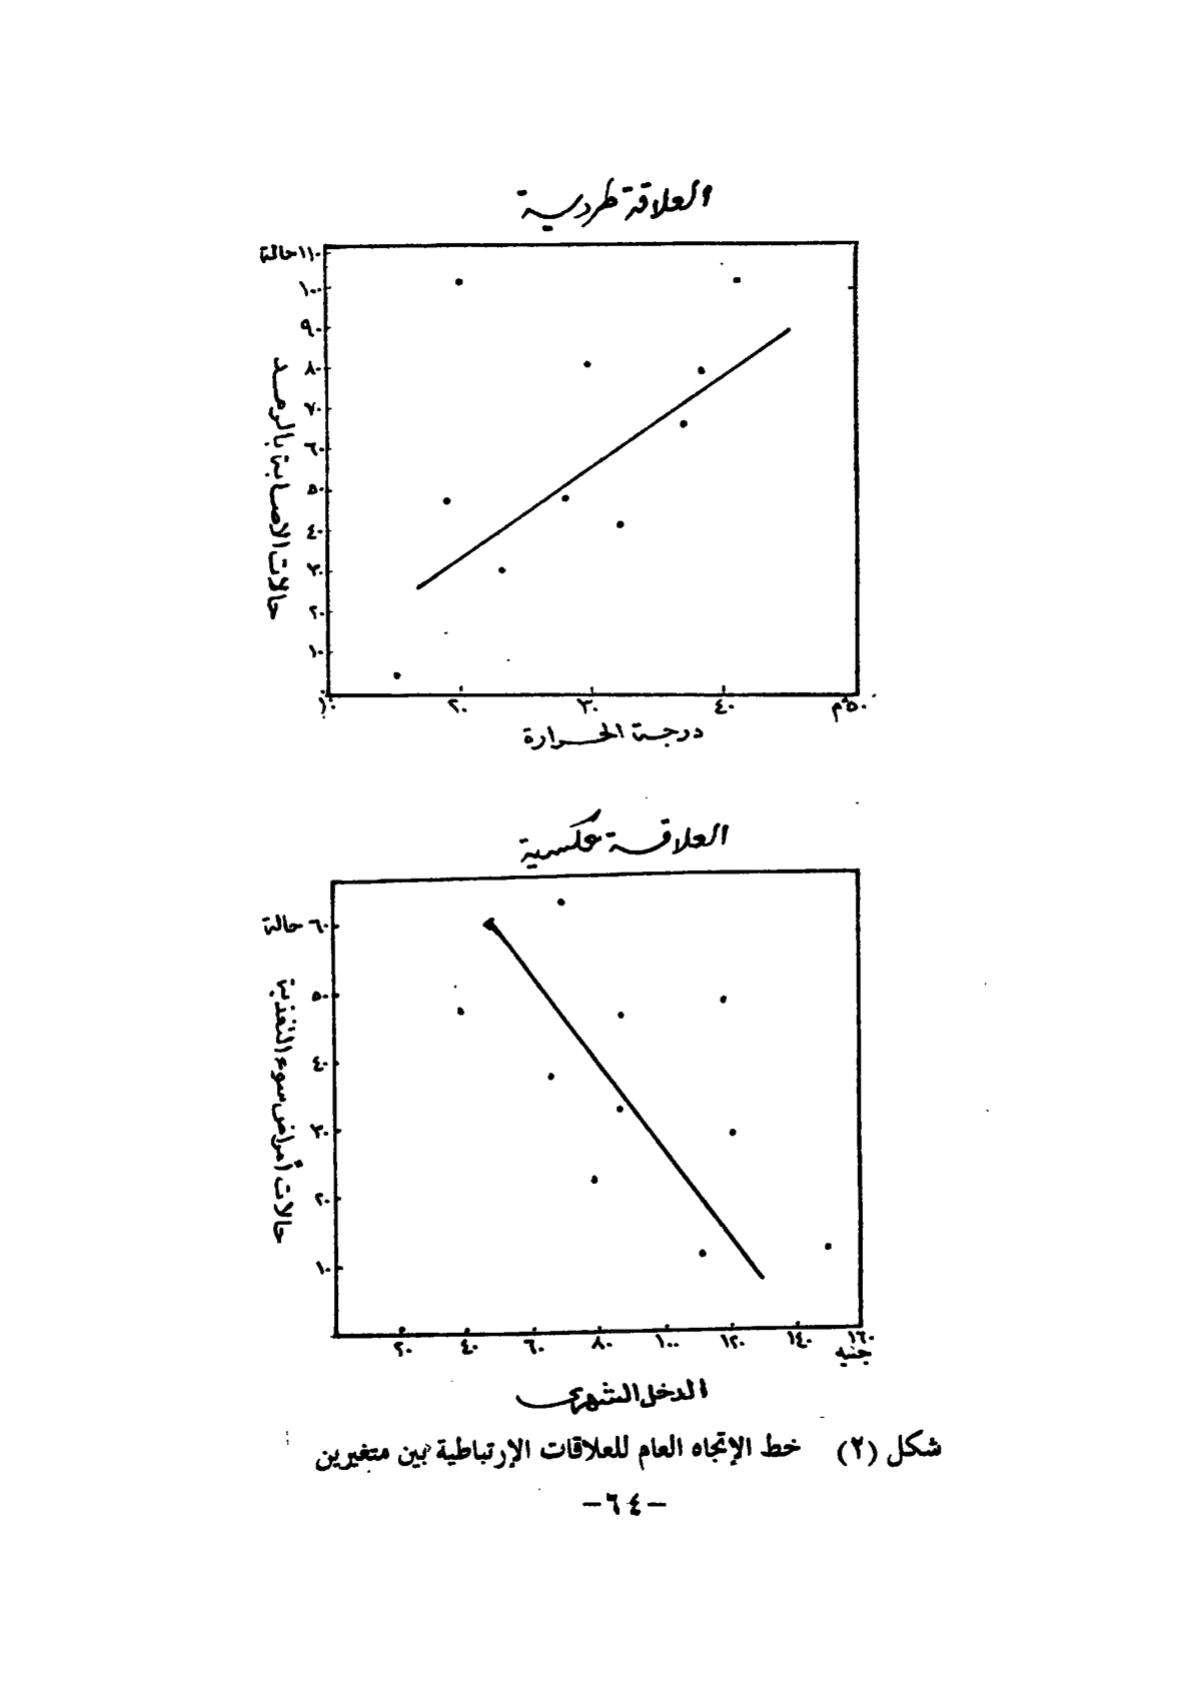 العلاقة طردية
١١٠ حالة
١٠٠
٩٠
٨٠
٧٠
٦٠
٥٠
٤٠
٣٠
٢٠
١٠
حالات الاصابة بالرمد
١٠ ٢٠ ٣٠ ٤٠ ٥٠°م
درجة الحرارة
العلاقة عكسية
٦٠ حالة
٥٠
٤٠
٣٠
٢٠
١٠
حالات أمراض سوء التغذية
٢٠ ٤٠ ٦٠ ٨٠ ١٠٠ ١٢٠ ١٤٠ ١٦٠
جنيه
الدخل الشهرى
شكل (٢) خط الإتجاه العام للعلاقات الإرتباطية بين متغيرين
-٦٤-